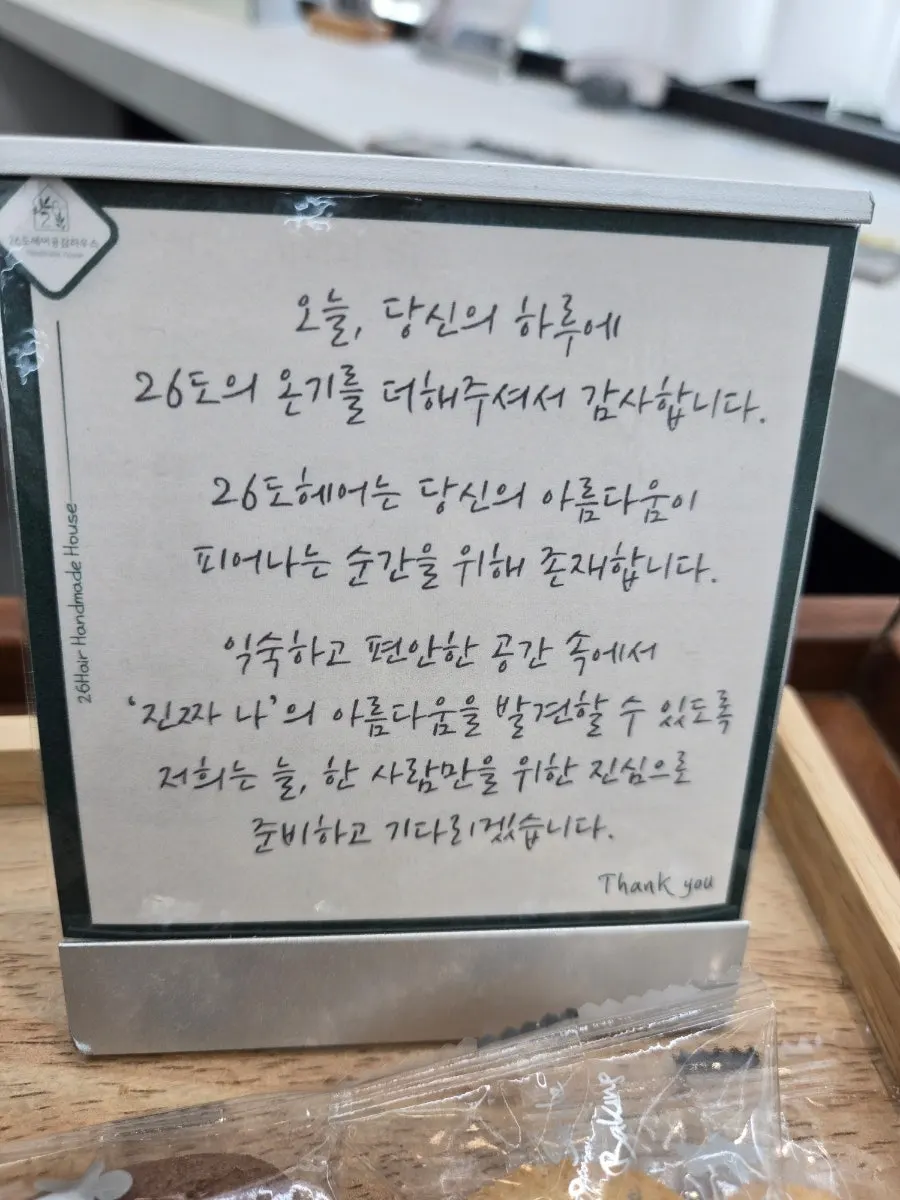 26도헤어공감하우스
오늘, 당신의 하루에
26도의 온기를 더해주셔서 감사합니다.
26도헤어는 당신의 아름다움이
피어나는 순간을 위해 존재합니다.
익숙하고 편안한 공간 속에서
'진짜 나'의 아름다움을 발견할 수 있도록
저희는 늘, 한 사람만을 위한 진심으로
준비하고 기다리겠습니다.
Thank you
26Hair Handmade House